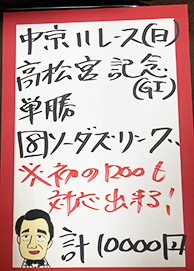 中京11レース(日)
高松宮記念
(GI)
単勝
⑧ソーダズリング、
※初の1200t
対応出来る!
計10000円